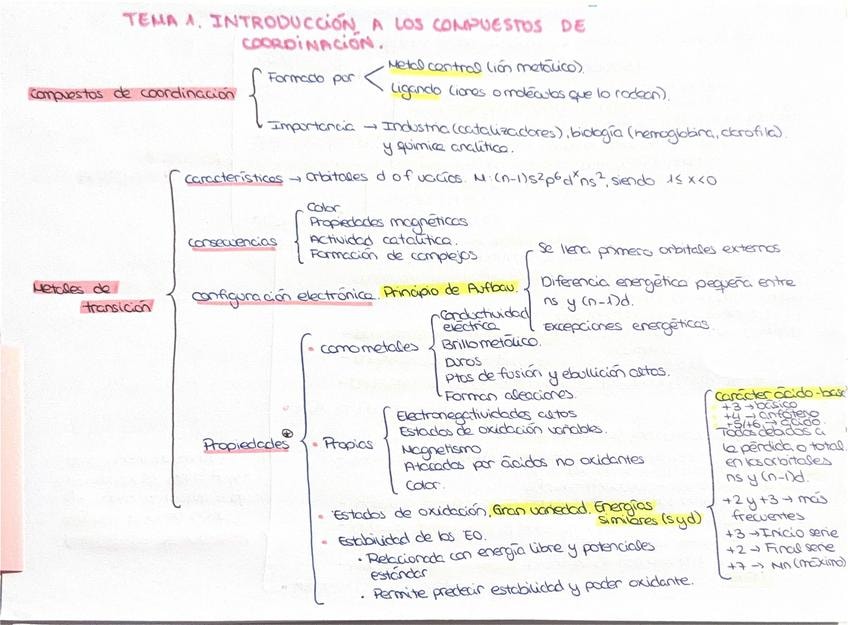 TEMA 1. INTRODUCCIÓN A LOS COMPUESTOS DE
COORDINACIÓN.
Compuestos de coordinación
Formado por
Metal central (ión metálico).
Ligando (iones o moléculas que lo rodean).
Importancia → Industria (catalizadores), biología (hemoglobina, clorofila)
y química analítica.
Metales de
transición
Características → orbitales d o f vacíos. M: (n-1)s²p⁶dˣns², siendo 1≤x<0
Consecuencias
Color
Propiedades magnéticas
Actividad catalítica.
Formación de complejos
Configuración electrónica. Principio de Aufbau.
Se llena primero orbitales externos
Diferencia energética pequeña entre
ns y (n-1)d.
Excepciones energéticas.
Propiedades
• Como metales
Conductividad
eléctrica
Brillo metálico.
Duros
Ptos de fusión y ebullición altos.
Forman aleaciones.
• Propias
Electronegatividades altos
Estados de oxidación variables.
Magnetismo
Atacados por ácidos no oxidantes
Color.
• Estados de oxidación. Gran variedad. Energías
similares (s y d)
Carácter ácido-base
+3 → básico
+4 → anfótero
+5/+6 → ácido.
Todos debidos a
la pérdida o total
en los orbitales
ns y (n-1)d.
+2 y +3 → más
frecuentes
+3 → Inicio serie
+2 → Final serie
+7 → Mn (máximo)
• Estabilidad de los EO.
• Relacionada con energía libre y potenciales
estándar
• Permite predecir estabilidad y poder oxidante.